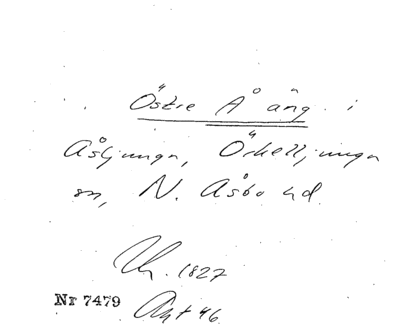 Östre Å äng i
Åsljunga, Örkelljunga
sn, N. Åsbo hd.
Uk. 1827
Nr 7479
Akt 46